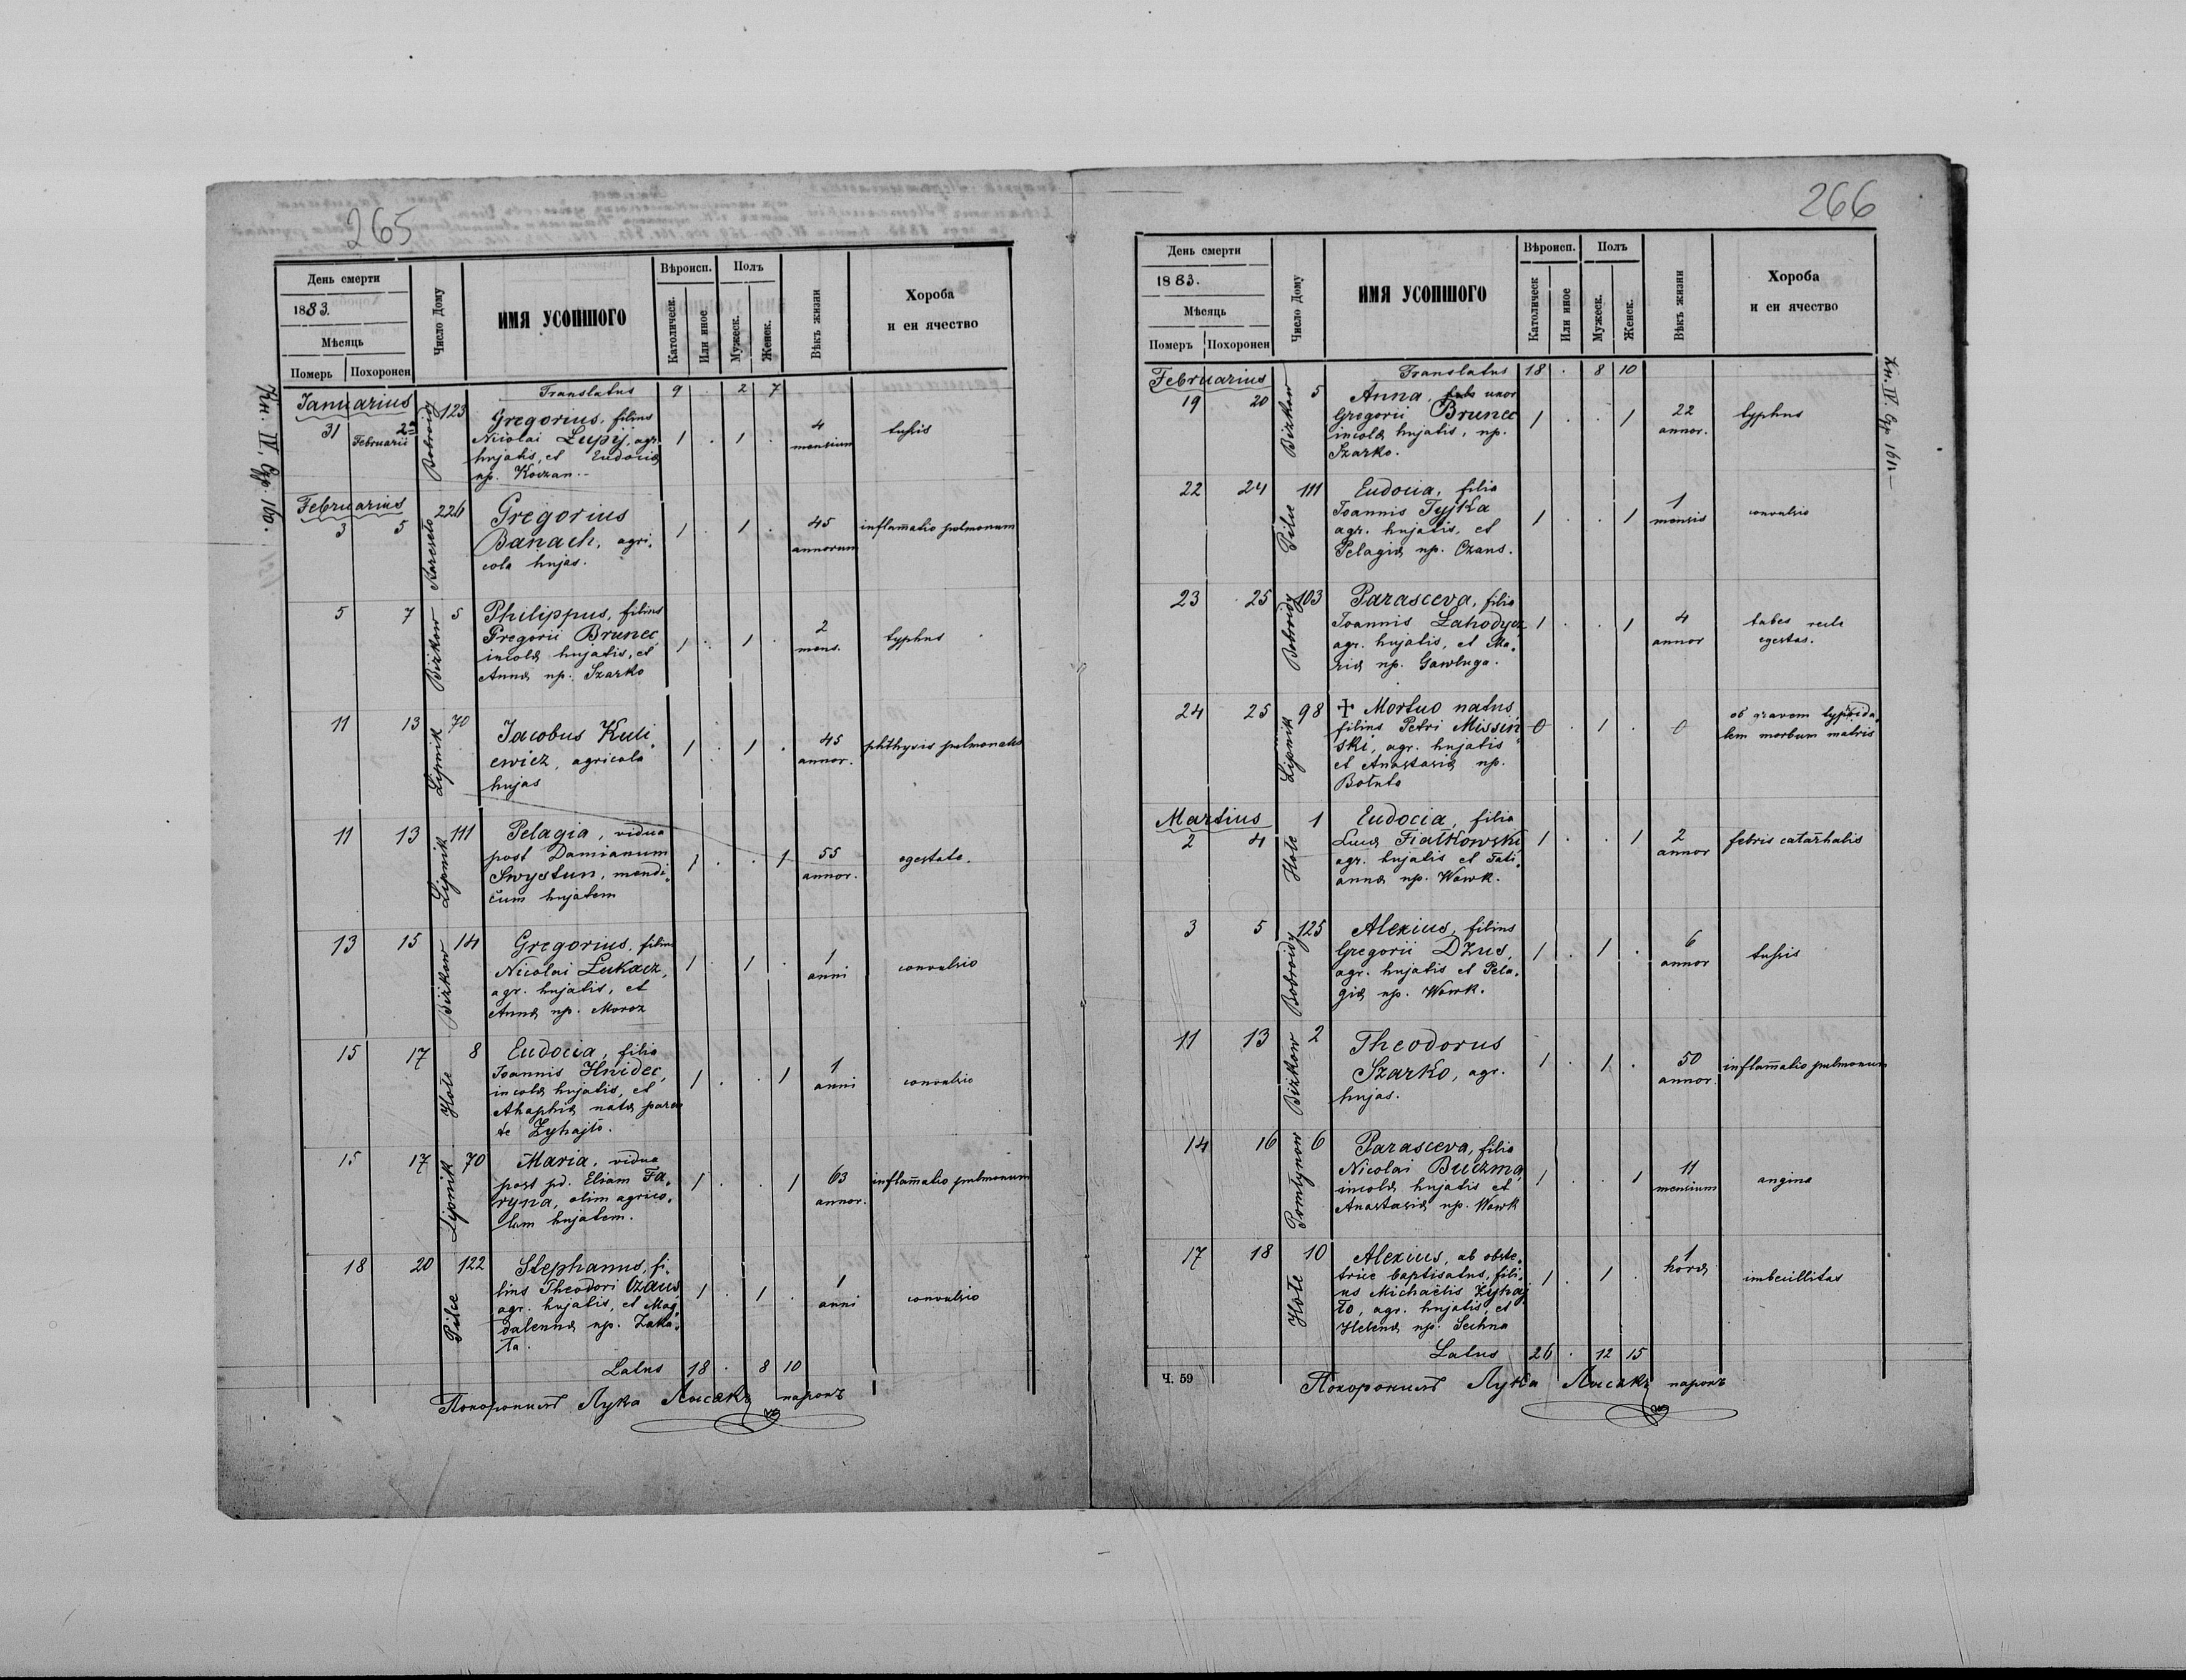 265
День смерти
1883.
Мѣсяць
Померъ Похоронен
Число Дому
ИМЯ УСОПШОГО
Вѣроисп.
Католическ.
Или иное
Полъ
Мужеск.
Женск.
Вѣкъ жизни
Хороба
и еи ячество
Кн. IV. Стр. 160.
Translatus 9 . 2 7
Januarius
31 2a Februarii Bobroidy 123 Gregorius, filius
Nicolai Łupij, agr. 1 . 1 . 4 mensium tussis
hujatis, et Eudociæ
np. Koczan.-
Februarius
3 5 226 Gregorius
Banach, agri- 1 . 1 . 45 annorum inflam̄atio pulmonum
cola hujas.
5 7 Bizkow 5 Philippus, filius
Gregorii Brunec 1 . 1 . 2 mens. typhus
incolæ hujatis, et
Annæ np. Szarko
11 13 Lipnik 70 Jacobus Kuli-
ewicz, agricola 1 . 1 . 45 annor. phthysis pulmonalis
hujas
11 13 Lipnik 111 Pelagia, vidua
post Damianum 1 . . 1 55 annor. egestate.
Swystun, mendi-
cum hujatem
13 15 Bizkow 14 Gregorius, filius
Nicolai Łukacz, 1 . 1 . 1 anni convulsio
agr. hujatis, et
Annæ np. Moroz
15 17 Hole 8 Eudocia, filia
Joannis Hnidec, 1 . . 1 1 anni convulsio
incolæ hujatis, et
Ahaphiæ natæ paren
te Zyhajło.
15 17 Lipnik 70 Maria, vidua
post pd. Eliam Fa- 1 . . 1 63 annor. inflam̄atio pulmonum
ryna, olim agrico-
lam hujatem.
18 20 Pilce 122 Stephanus, fi-
lius Theodori Ozaus, 1 . 1 . 1 anni convulsio
agr. hujatis, et Mag-
dalennæ np. Zaka-
ła.
Latus 18 . 8 10
Похоронилъ Лука Лисакъ парохъ
266
День смерти
1883.
Мѣсяць
Померъ Похоронен
Число Дому
ИМЯ УСОПШОГО
Вѣроисп.
Католическ
Или иное
Полъ
Мужеск.
Женск.
Вѣкъ жизни
Хороба
и еи ячество
Кн. IV. Стр 161.-
Translatus 18 . 8 10
Februarius
19 20 Bizkow 5 Anna, uxor
Gregorii Brunec 1 . . 1 22 annor. typhus
incolæ hujatis, np.
Szarko.
22 24 Pilce 111 Eudocia, filia
Joannis Tyjka 1 . . 1 1 mensis convulsio
agr. hujatis, et
Pelagiæ np. Ozaus.
23 25 Bobroidy 103 Parasceva, filia
Joannis Łahodycz 1 . . 1 4 annor tabes recte
agr. hujatis, et Ma- egestas.
riæ np. Gawługa.
24 25 Lipnik 98 ✝ Mortuo natus,
filius Petri Missiń- 0 . 1 . 0 ob gravem typhoida-
ski, agr. hujatis lem morbum matris
et Anastasiæ np.
Bołuta
Martius
2 4 Hole 1 Eudocia, filia
Lucæ Fiałkowski 1 . . 1 2 annor febris catarhalis
agr. hujatis et Tati-
annæ np. Wowk.
3 5 Bobroidy 125 Alexius, filius
Gregorii Dzus, 1 . 1 . 6 annor tussis
agr. hujatis et Pela-
giæ np. Wowk.
11 13 Bizkow 2 Theodorus
Szarko, agr. 1 . 1 . 50 annor. inflam̄atio pulmonum
hujas.
14 16 6 Parasceva, filia
Nicolai Buczma, 1 . . 1 11 mensium angina
incolæ hujatis et
Anastasiæ np. Wowk
17 18 Hole 10 Alexius, ab obste-
trice baptisatus, fili- 1 . 1 . 1 horæ imbecillitas
us Michaëlis Zyhaj
ło, agr. hujatis, et
Helenæ np. Sechna
Latus 26 . 12 15
Ч. 59
Похоронилъ Лука Лисакъ парохъ